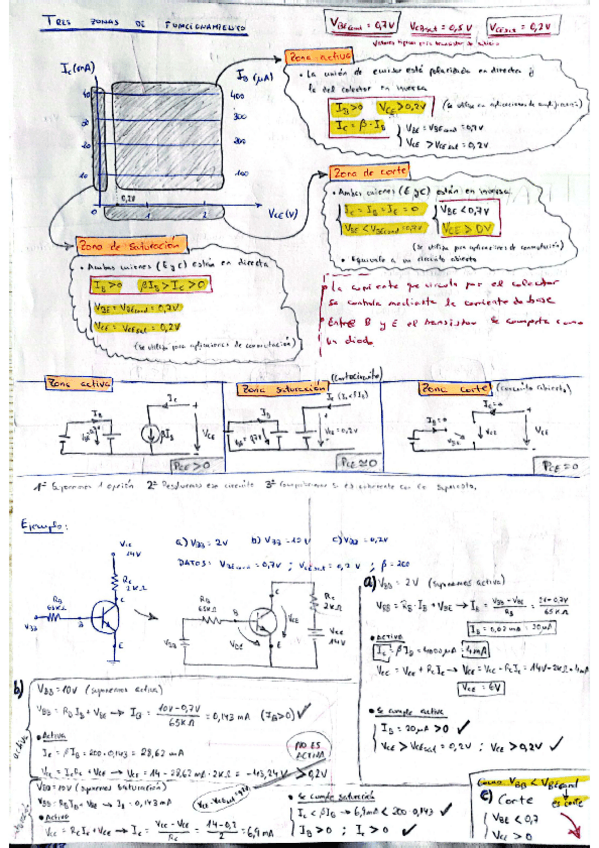 TRES ZONAS DE FUNCIONAMIENTO
VBEcond = 0,7V
VCEsat = 0,2V
Ic(mA)
IB (µA)
40
30
20
10
400
300
200
100
0
0,2V
1
2
VCE(V)
Zona activa
• La unión de emisor está polarizada en directa y
la del colector en inversa
IB>0 VCE>0,2V (se utiliza en aplicaciones de amplificación)
IC = β·IB
VBE = VBEcond = 0,7V
VCE > VCEsat = 0,2V
Zona de corte
• Ambas uniones (E y C) están en inversa
IC = IB = IE = 0
VBE < VBEcond = 0,7V
VBE < 0,7V
VCE > 0V
(se utiliza para aplicaciones de conmutación)
• Equivale a un circuito abierto
Zona de Saturación
• Ambas uniones (E y C) están en directa
IB>0 βIB > IC > 0
VBE = VBEcond = 0,7V
VCE = VCEsat = 0,2V
(se utiliza para aplicaciones de conmutación)
• La corriente que circula por el colector
se controla mediante la corriente de base
• Entre B y E el transistor se comporta como
un diodo
Zona activa
IB
IC
βIB
VCE
PCE > 0
Zona saturación (cortocircuito)
IB
VCE = 0,2V
PCE ≈ 0
Zona corte (circuito abierto)
IB = 0
IC = 0
VCE
PCE = 0
1º Suponemos 1 opción 2º Resolvemos ese circuito 3º Comprobamos si es coherente con lo supuesto.
Ejemplo:
a) VBB = 2V b) VBB = 10V c) VBB = 0,2V
DATOS: VBEcond = 0,7V ; VCEsat = 0,2V ; β = 200
Vcc
14V
Rc
2KΩ
RB
65KΩ
VBB
B
C
E
RB
65KΩ
B
C
E
VBB
VBE
VCE
Rc
2KΩ
Vcc
14V
a) VBB = 2V (suponemos activa)
VBB = RB·IB + VBE → IB = VBB - VBE / RB = 2V-0,7V / 65KΩ
IB = 0,02mA = 20µA
• Activa
IC = βIB = 4000µA = 4mA
Vcc = VCE + RcIc → VCE = Vcc - RcIc = 14V - 2KΩ·4mA
VCE = 6V
• Se cumple activa
IB = 20µA > 0 ✓
VCE > VCEsat = 0,2V ; VCE > 0,2V ✓
b) VBB = 10V (suponemos activa)
VBB = RBIB + VBE → IB = 10V-0,7V / 65KΩ = 0,143 mA (IB>0) ✓
• Activa
IC = βIB = 200·0,143 = 28,62 mA
Vcc = IcRc + VCE → VCE = 14 - 28,62 mA·2KΩ = -43,24V > 0,2V
NO ES
ACTIVA
VBB = 10V (suponemos saturación)
VBB = RBIB + VBE → IB = 0,143 mA
• Activo
Vcc = RcIc + VCE → Ic = Vcc - VCE / Rc = 14-0,2 / 2 = 6,9mA
• Se cumple saturación
IC < βIB → 6,9mA < 200·0,143 ✓
IB > 0 ; IC > 0 ✓
Como VBB < VBEcond
es corte
c) Corte
VBE < 0,7
VCE > 0